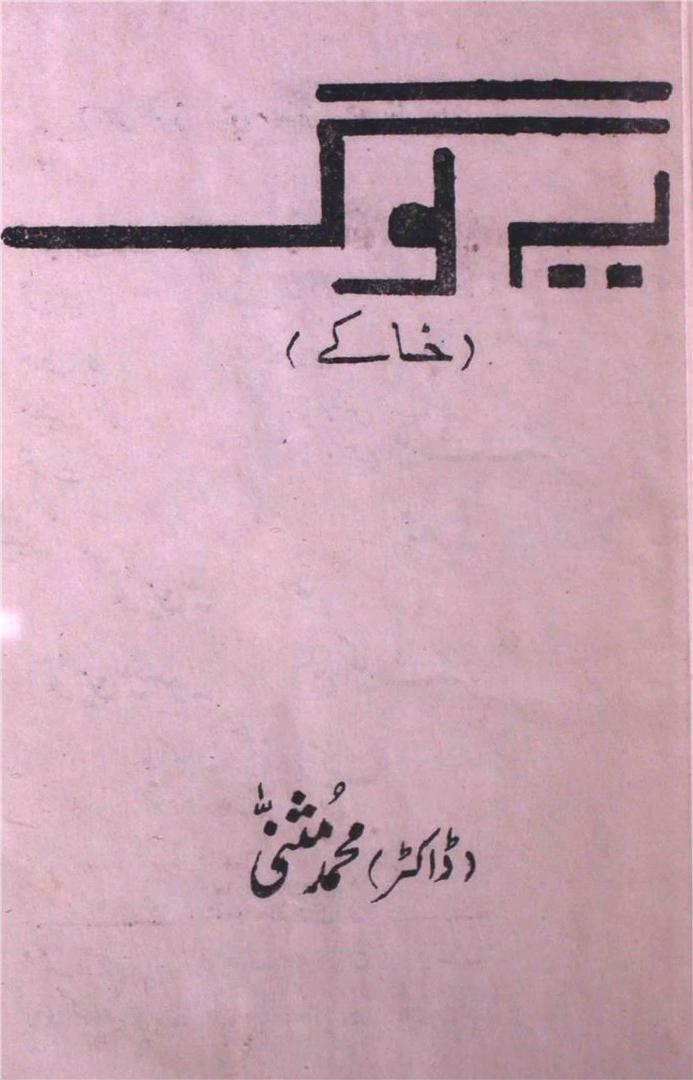 یہ لوگ
(خاکے)
(ڈاکٹر) محمد مُثنیّٰ